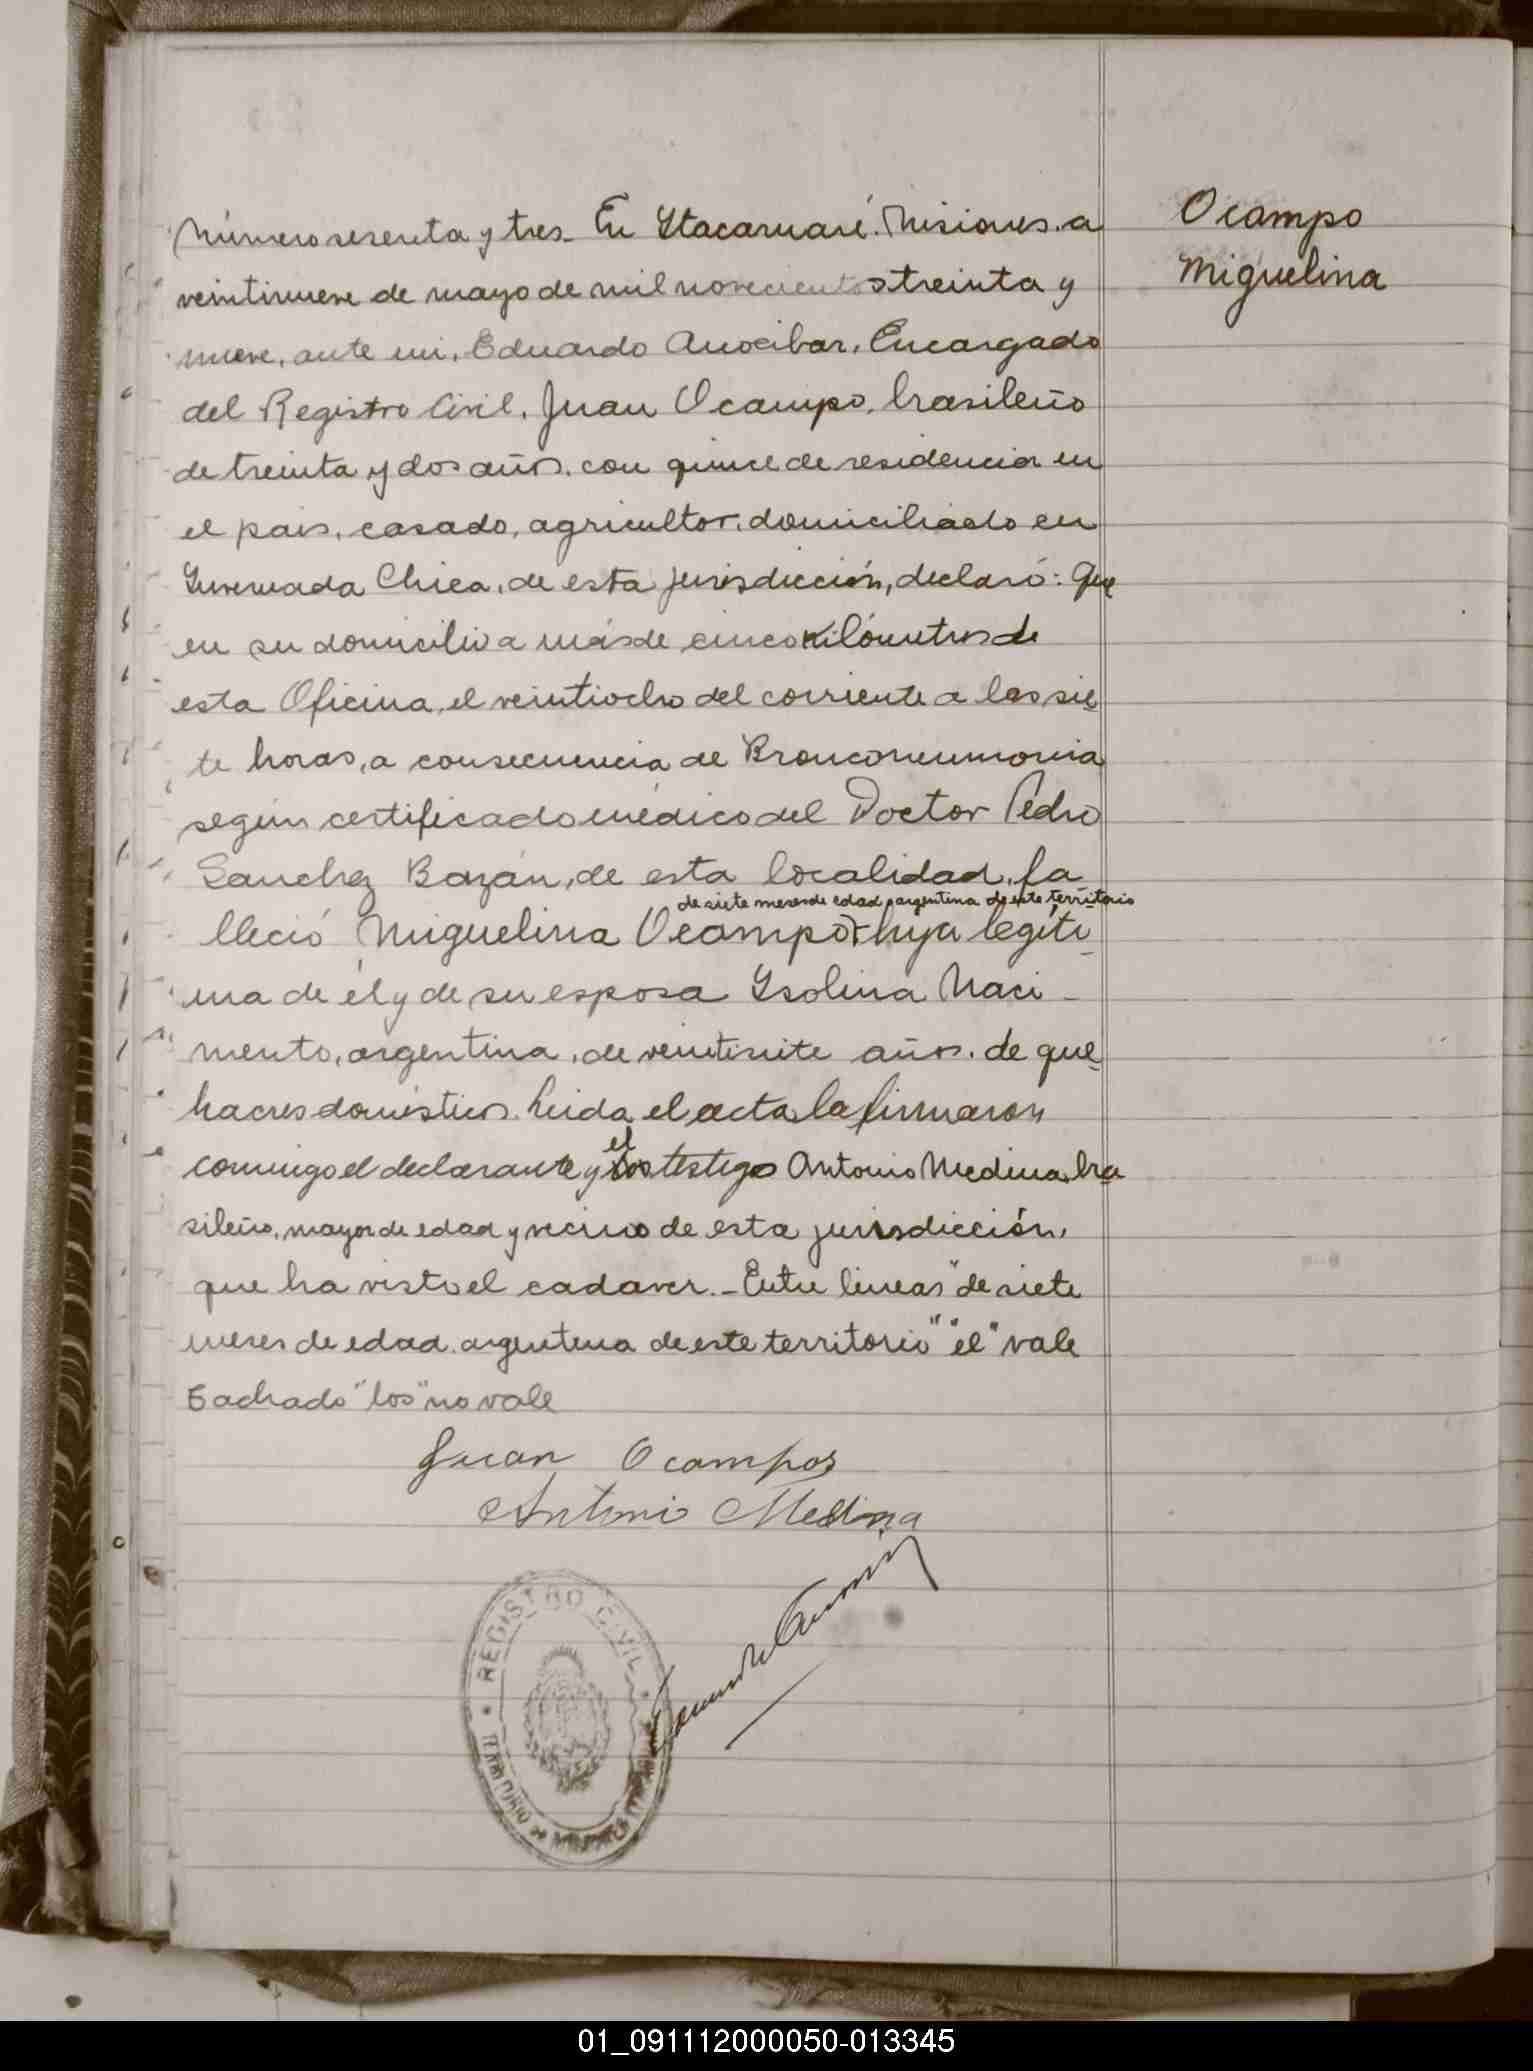 Ocampo
Miguelina
Número sesenta y tres. En Itacaruaré. Misiones. a
veintinueve de mayo de mil novecientos treinta y
nueve, ante mi, Eduardo Anocibar, Encargado
del Registro Civil, Juan Ocampo, brasileño
de treinta y dos años, con quince de residencia en
el pais, casado, agricultor, domiciliado en
Invernada Chica, de esta jurisdicción, declaró: Que
en su domicilio a más de cinco kilómetros de
esta Oficina, el veintiocho del corriente a las sie
te horas, a consecuencia de Bronconeumonia
según certificado médico del Doctor Pedro
Sanchez Bazán, de esta localidad, fa
de siete meses de edad, argentina de este territorio
lleció Miguelina Ocampo, hija legíti
ma de él y de su esposa Ysolina Naci
mento, argentina, de veintisiete años, de que
haceres domésticos. Leida el acta la firmaron
el
conmigo el declarante y los testigo Antonio Medina, bra
sileño, mayor de edad y vecino de esta jurisdicción,
que ha visto el cadaver.- Entre lineas "de siete
meses de edad. argentina de este territorio" "el" vale
Tachado "los" no vale
Juan Ocampos
Antonio Medina
REGISTRO CIVIL
TERRITORIO DE
01_091112000050-013345